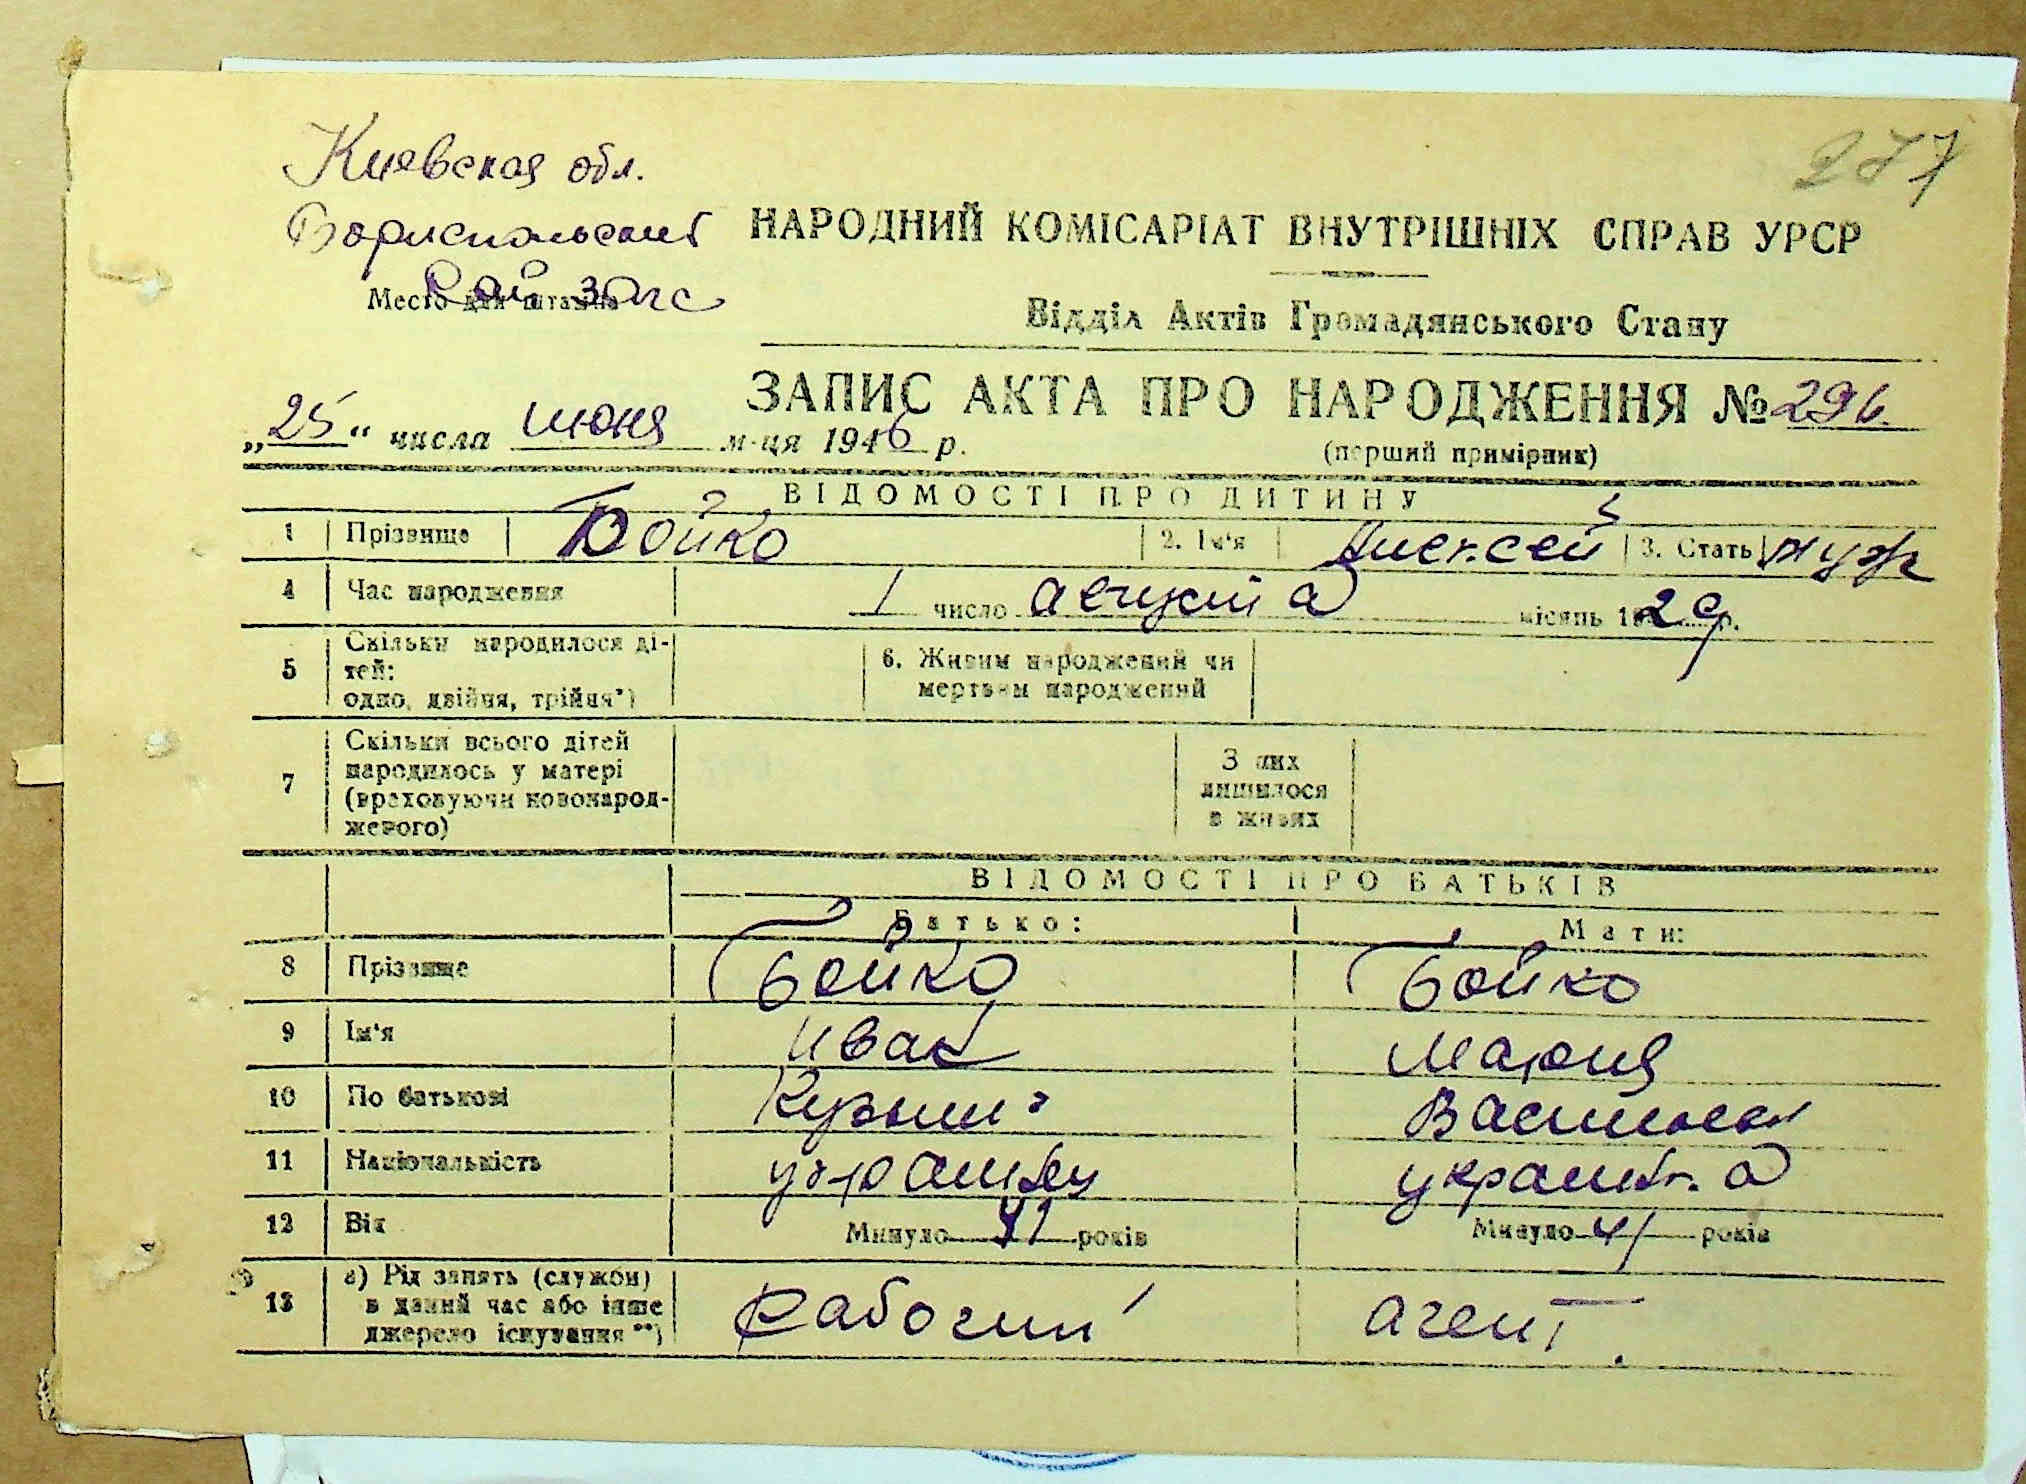 277
Киевская обл.
Бориспольский
Рай загс
Место для штампа
НАРОДНИЙ КОМІСАРІАТ ВНУТРІШНІХ СПРАВ УРСР
Відділ Актів Громадянського Стану
ЗАПИС АКТА ПРО НАРОДЖЕННЯ № 296.
(перший примірник)
„25“ числа июня м-ця 1946 р.
ВІДОМОСТІ ПРО ДИТИНУ
1 Прізвище Бойко 2. Ім'я Алексей 3. Стать муж
4 Час народження 1 число августа місяць 1929 р.
5 Скільки народилося ді-
тей:
одно, двійня, трійня*)
6. Живим народжений чи
мертвим народжений
7 Скільки всього дітей
народилось у матері
(враховуючи новонарод-
женого)
З них
лишилося
в живих
ВІДОМОСТІ ПРО БАТЬКІВ
Батько: Мати:
8 Прізвище Бойко Бойко
9 Ім'я Иван Мария
10 По батькові Васильев
11 Національність украинец украинка
12 Вік Минуло 41 років Минуло 41 років
13 а) Рід занять (служби)
в даний час або інше
джерело існування **)
рабочий агент.